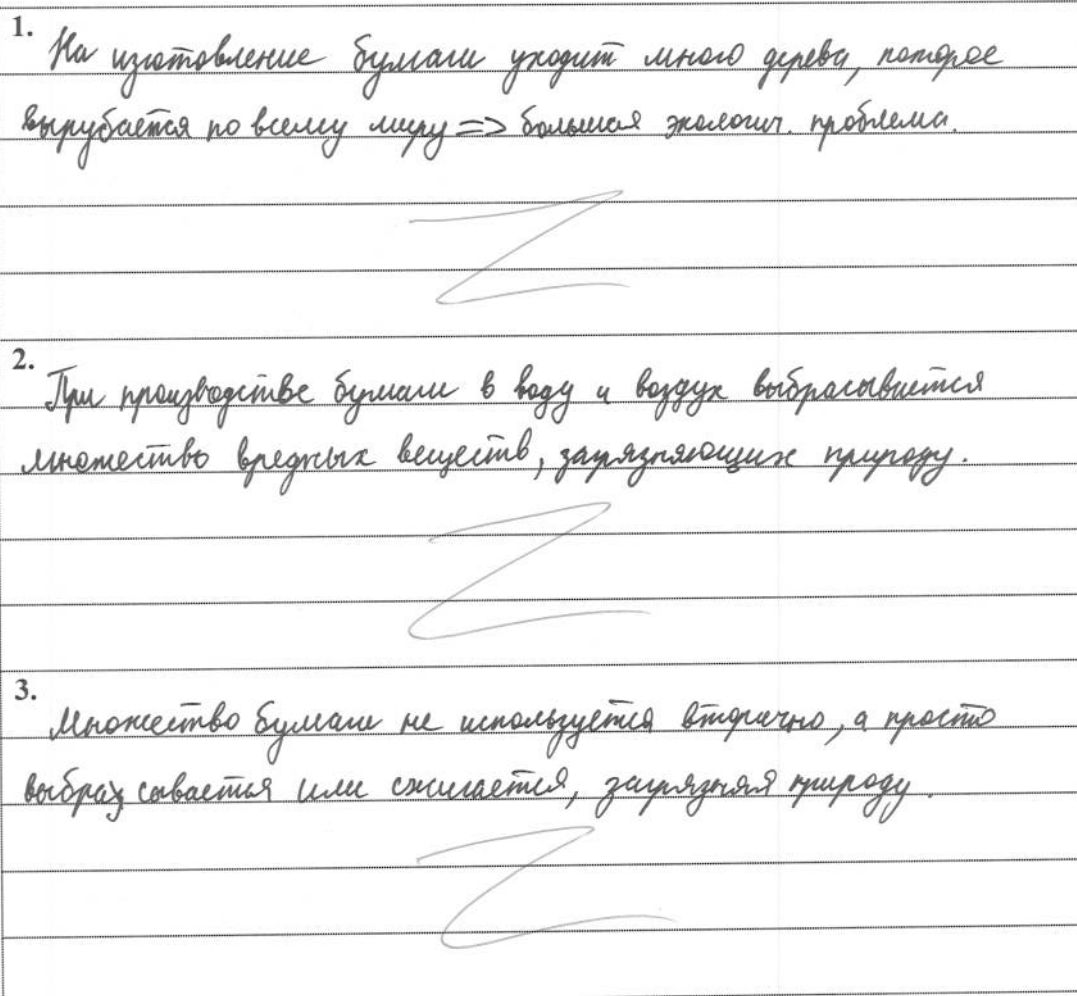 1. На изготовление бумаги уходит много дерева, которое
вырубается по всему миру => большая экологич. проблема.
2. При производстве бумаги в воду и воздух выбрасывается
множество вредных веществ, загрязняющих природу.
3. Множество бумаги не используется вторично, а просто
выбрасывается или сжигается, загрязняя природу.